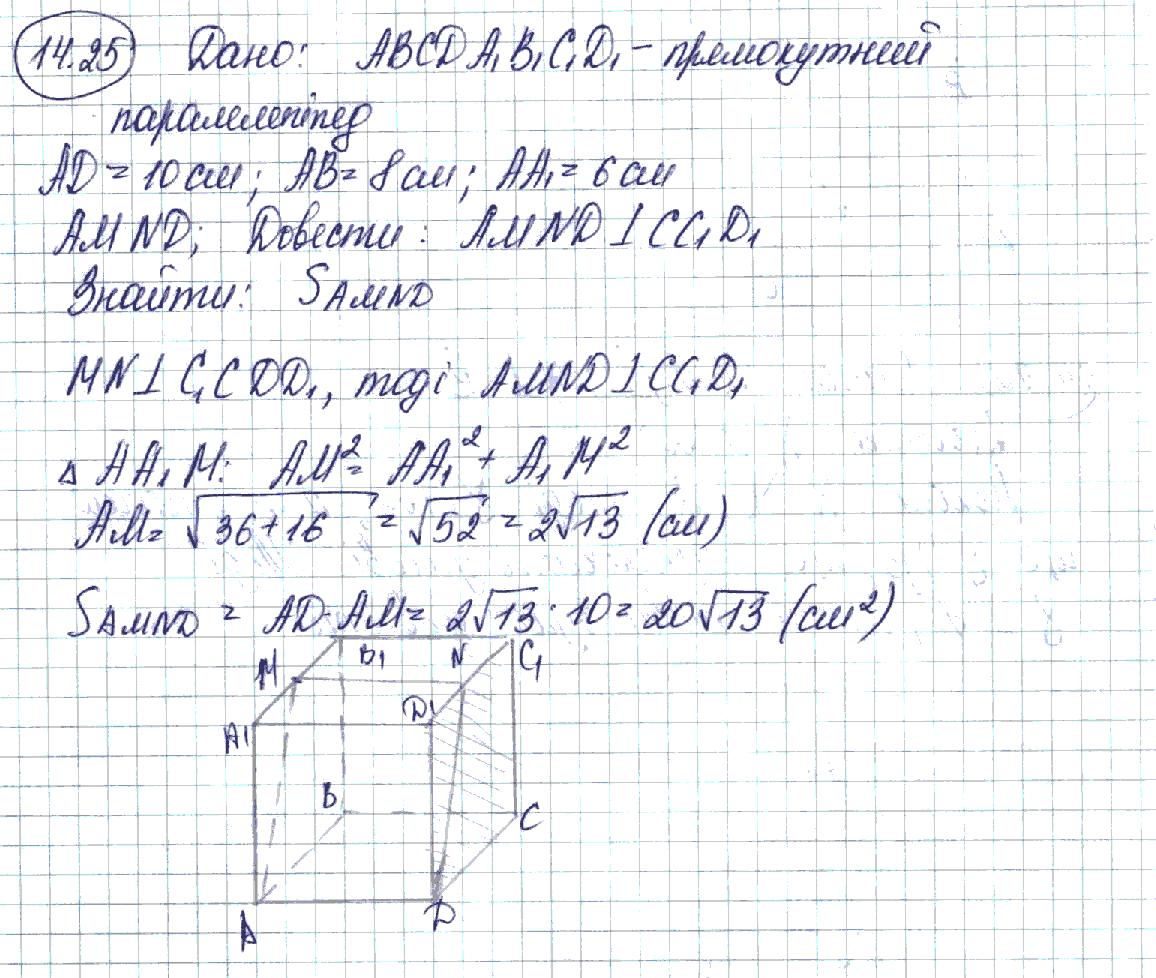 14.25 Дано: ABCDA₁B₁C₁D₁ – прямокутний
паралелепіпед
AD = 10 см; AB = 8 см; AA₁ = 6 см
AMND; Довести: AMND ⊥ CC₁D₁
Знайти: S AMND
MN ⊥ C₁CDD₁, тоді AMND ⊥ CC₁D₁
Δ AA₁M: AM² = AA₁² + A₁M²
AM = √36+16 = √52 = 2√13 (см)
S AMND = AD·AM = 2√13 · 10 = 20√13 (см²)
M B₁ N C₁
A₁ D₁
B C
A D